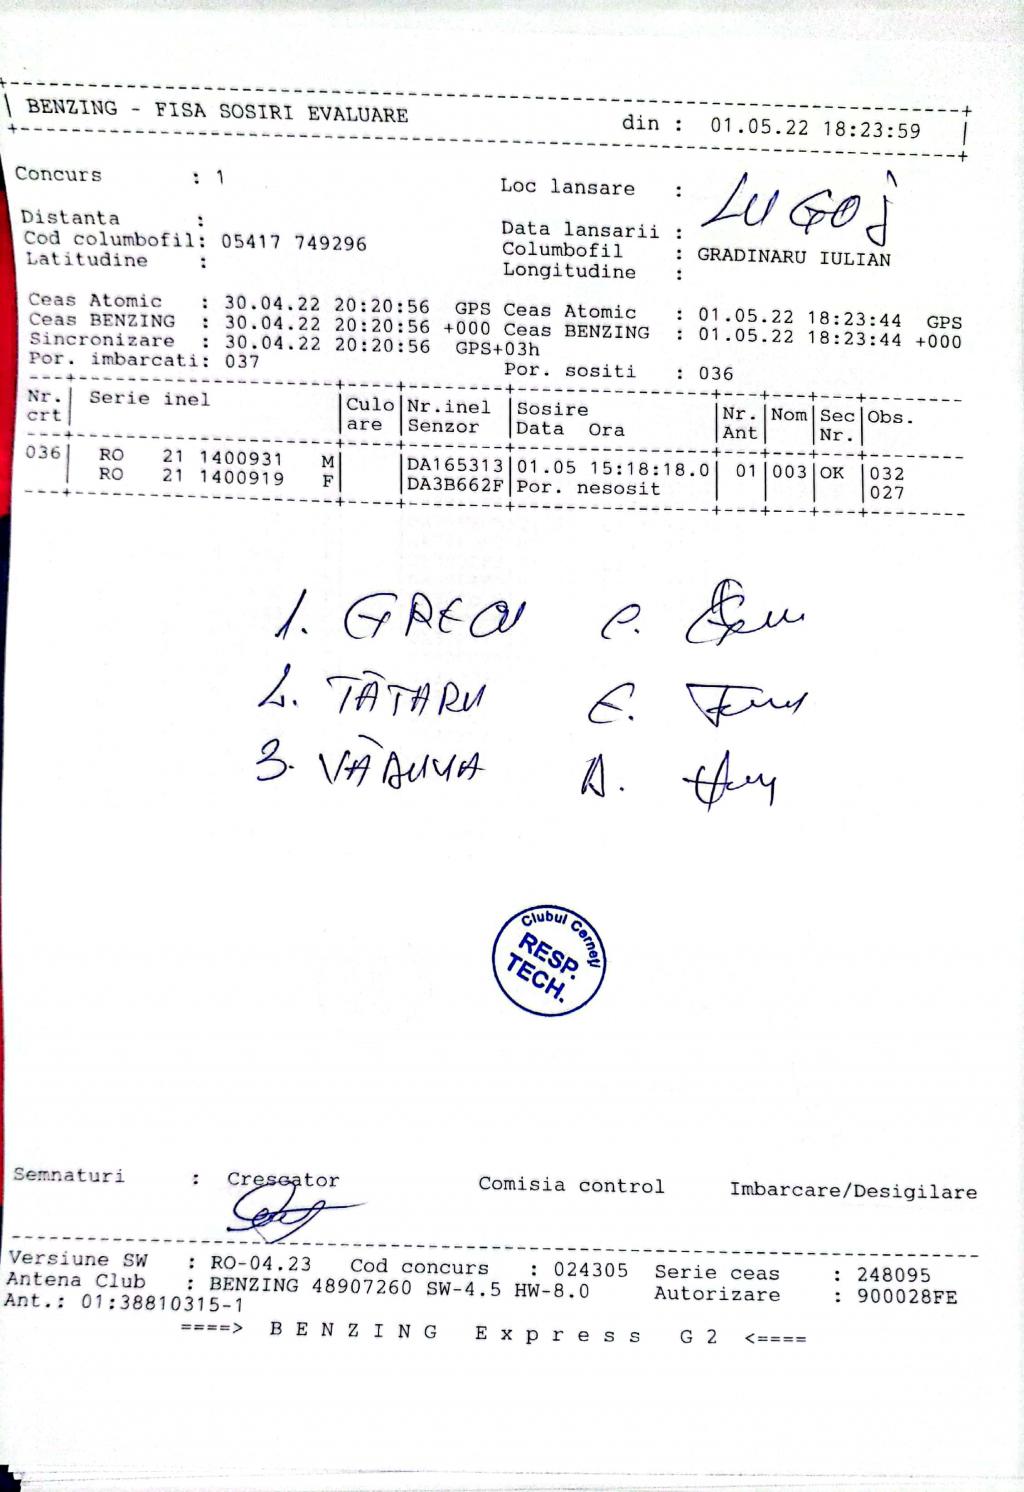 BENZING - FISA SOSIRI EVALUARE din : 01.05.22 18:23:59
Concurs : 1 Loc lansare : LUGOJ
Distanta : Data lansarii :
Cod columbofil: 05417 749296 Columbofil : GRADINARU IULIAN
Latitudine : Longitudine :
Ceas Atomic : 30.04.22 20:20:56 GPS Ceas Atomic : 01.05.22 18:23:44 GPS
Ceas BENZING : 30.04.22 20:20:56 +000 Ceas BENZING : 01.05.22 18:23:44 +000
Sincronizare : 30.04.22 20:20:56 GPS+03h
Por. imbarcati: 037 Por. sositi : 036
Nr. Serie inel Culo Nr.inel Sosire Nr. Nom Sec Obs.
crt are Senzor Data Ora Ant Nr.
036 RO 21 1400931 M DA165313 01.05 15:18:18.0 01 003 OK 032
RO 21 1400919 F DA3B662F Por. nesosit 027
1. GRECU C.
2. TĂTARU E.
3. VĂDUVA A.
Clubul Cerneți
RESP.
TECH.
Semnaturi : Crescator Comisia control Imbarcare/Desigilare
Versiune SW : RO-04.23 Cod concurs : 024305 Serie ceas : 248095
Antena Club : BENZING 48907260 SW-4.5 HW-8.0 Autorizare : 900028FE
Ant.: 01:38810315-1
====> B E N Z I N G E x p r e s s G 2 <====